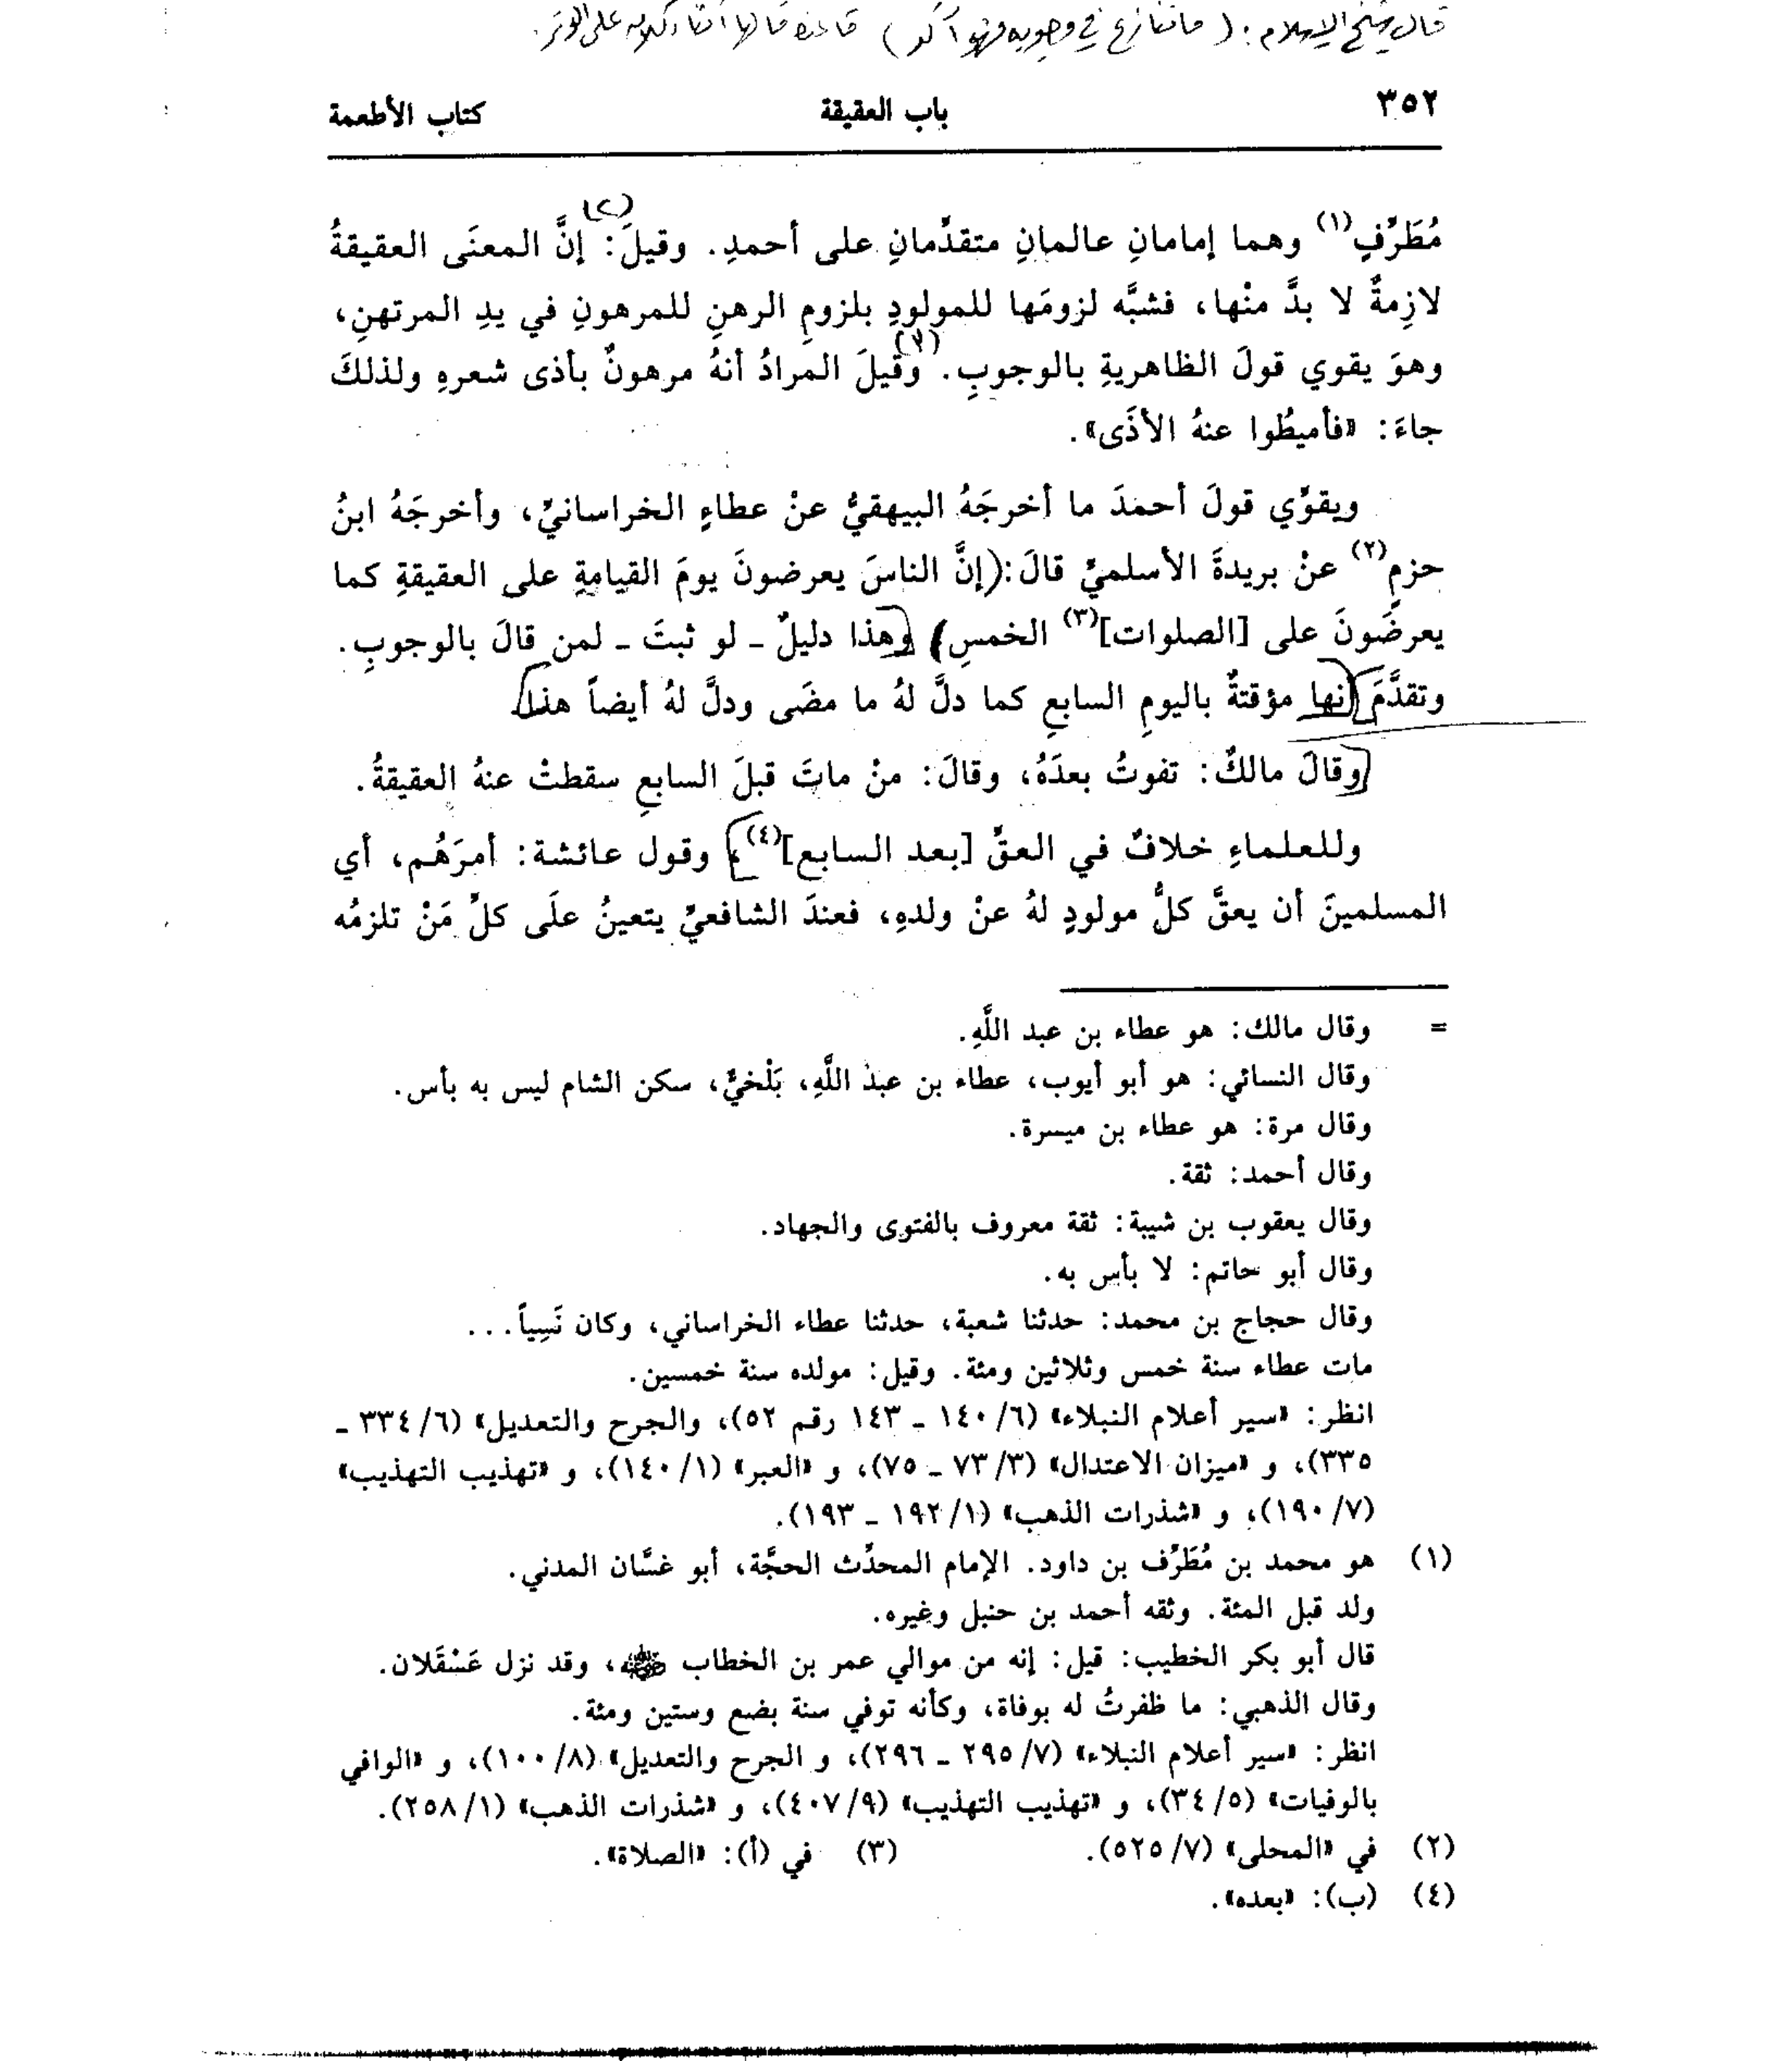 قال شيخ الإسلام : ( ما تنازع في وجوبه فهو آكد ) قاعدة قالها أثناء كلامه على الوتر .
٣٥٢ باب العقيقة كتاب الأطعمة
(٢)
مُطَرِّفٍ(١) وهما إمامانِ عالمانِ متقدِّمانِ على أحمدِ. وقيلَ: إنَّ المعنَى العقيقةُ
لازِمةٌ لا بدَّ منْها، فشبَّه لزومَها للمولودِ بلزومِ الرهنِ للمرهونِ في يدِ المرتهنِ،
(٣)
وهوَ يقوي قولَ الظاهريةِ بالوجوبِ. وقيلَ المرادُ أنهُ مرهونٌ بأذى شعرهِ ولذلكَ
جاءَ: «فأميطُوا عنهُ الأذَى».
ويقوِّي قولَ أحمدَ ما أخرجَهُ البيهقيُّ عنْ عطاءٍ الخراسانيِّ، وأخرجَهُ ابنُ
حزمٍ(٢) عنْ بريدةَ الأسلميِّ قالَ: (إنَّ الناسَ يعرضونَ يومَ القيامةِ على العقيقةِ كما
يعرضُونَ على [الصلوات](٣) الخمسِ) وهذا دليلٌ ـ لو ثبتَ ـ لمن قالَ بالوجوبِ.
وتقدَّمَ أنها مؤقتةٌ باليومِ السابعِ كما دلَّ لهُ ما مضَى ودلَّ لهُ أيضاً هذا
وقالَ مالكٌ: تفوتُ بعدَهُ، وقالَ: منْ ماتَ قبلَ السابعِ سقطتْ عنهُ العقيقةُ.
وللعلماءِ خلافٌ في العقِّ [بعد السابع](٤)، وقول عائشة: أمرَهُم، أي
المسلمينَ أن يعقَّ كلُّ مولودٍ لهُ عنْ ولدهِ، فعندَ الشافعيِّ يتعينُ علَى كلِّ مَنْ تلزمُه
= وقال مالك: هو عطاء بن عبد اللَّهِ.
وقال النسائي: هو أبو أيوب، عطاء بن عبد اللَّهِ، بَلْخيٌّ، سكن الشام ليس به بأس.
وقال مرة: هو عطاء بن ميسرة.
وقال أحمد: ثقة.
وقال يعقوب بن شيبة: ثقة معروف بالفتوى والجهاد.
وقال أبو حاتم: لا بأس به.
وقال حجاج بن محمد: حدثنا شعبة، حدثنا عطاء الخراساني، وكان نَسِياً...
مات عطاء سنة خمس وثلاثين ومئة. وقيل: مولده سنة خمسين.
انظر: «سير أعلام النبلاء» (٦/ ١٤٠ ـ ١٤٣ رقم ٥٢)، والجرح والتعديل» (٦/ ٣٣٤ ـ
٣٣٥)، و «ميزان الاعتدال» (٣/ ٧٣ ـ ٧٥)، و «العبر» (١/ ١٤٠)، و «تهذيب التهذيب»
(٧/ ١٩٠)، و «شذرات الذهب» (١/ ١٩٢ ـ ١٩٣).
(١) هو محمد بن مُطَرِّف بن داود. الإمام المحدِّث الحجَّة، أبو غسَّان المدني.
ولد قبل المئة. وثقه أحمد بن حنبل وغيره.
قال أبو بكر الخطيب: قيل: إنه من موالي عمر بن الخطاب رضي الله عنه، وقد نزل عَسْقَلان.
وقال الذهبي: ما ظفرتُ له بوفاة، وكأنه توفي سنة بضع وستين ومئة.
انظر: «سير أعلام النبلاء» (٧/ ٢٩٥ ـ ٢٩٦)، و الجرح والتعديل» (٨/ ١٠٠)، و «الوافي
بالوفيات» (٥/ ٣٤)، و «تهذيب التهذيب» (٩/ ٤٠٧)، و «شذرات الذهب» (١/ ٢٥٨).
(٢) في «المحلى» (٧/ ٥٢٥). (٣) في (أ): «الصلاة».
(٤) (ب): «بعده».